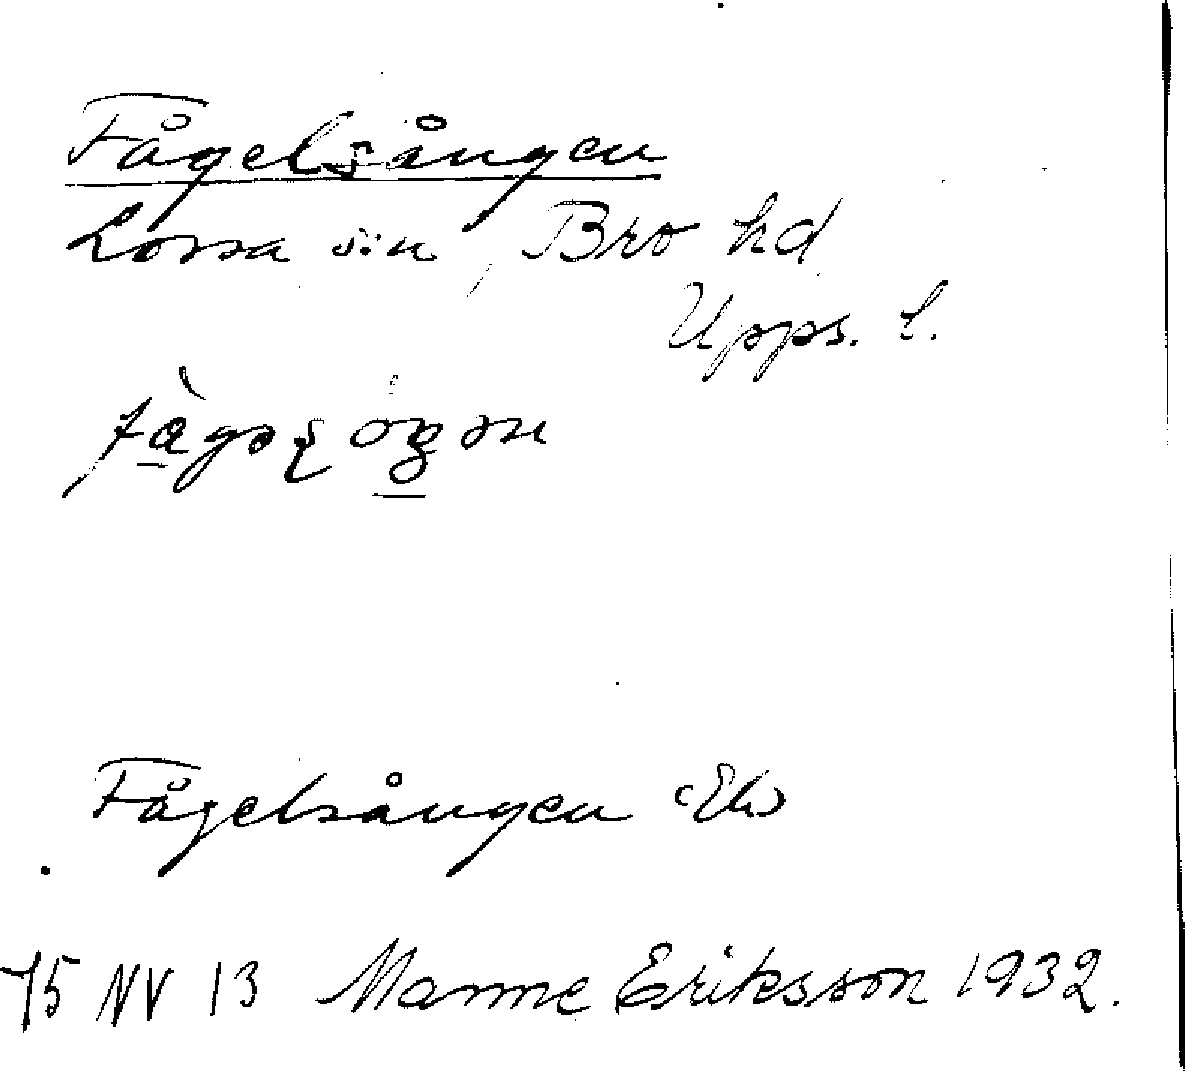 Fågelsången
Lossa sn, Bro hd
Upps. l.
Fågelsången (Ek)
75 NV 13 Manne Eriksson 1932.